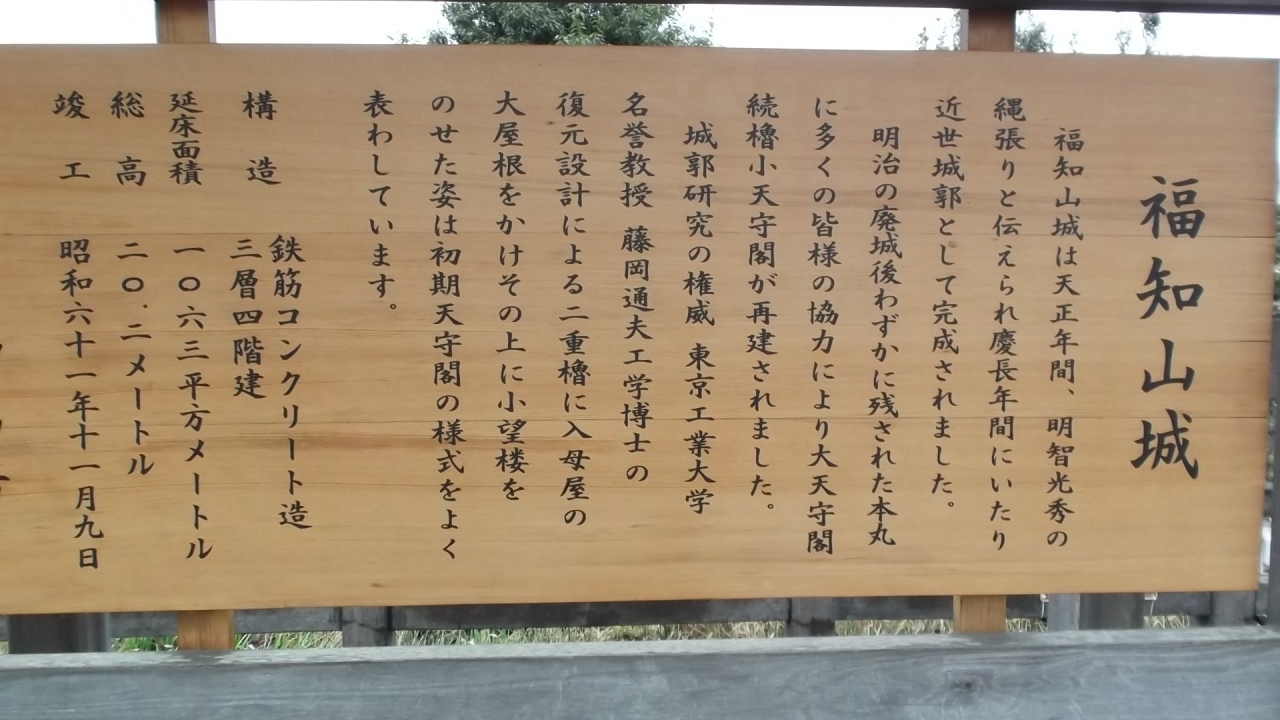 福知山城
福知山城は天正年間、明智光秀の
縄張りと伝えられ慶長年間にいたり
近世城郭として完成されました。
明治の廃城後わずかに残された本丸
に多くの皆様の協力により大天守閣
続櫓小天守閣が再建されました。
城郭研究の権威 東京工業大学
名誉教授 藤岡通夫工学博士の
復元設計による二重櫓に入母屋の
大屋根をかけその上に小望楼を
のせた姿は初期天守閣の様式をよく
表わしています。
構造 鉄筋コンクリート造
三層四階建
延床面積 一〇六三平方メートル
総高 二〇.二メートル
竣工 昭和六十一年十一月九日